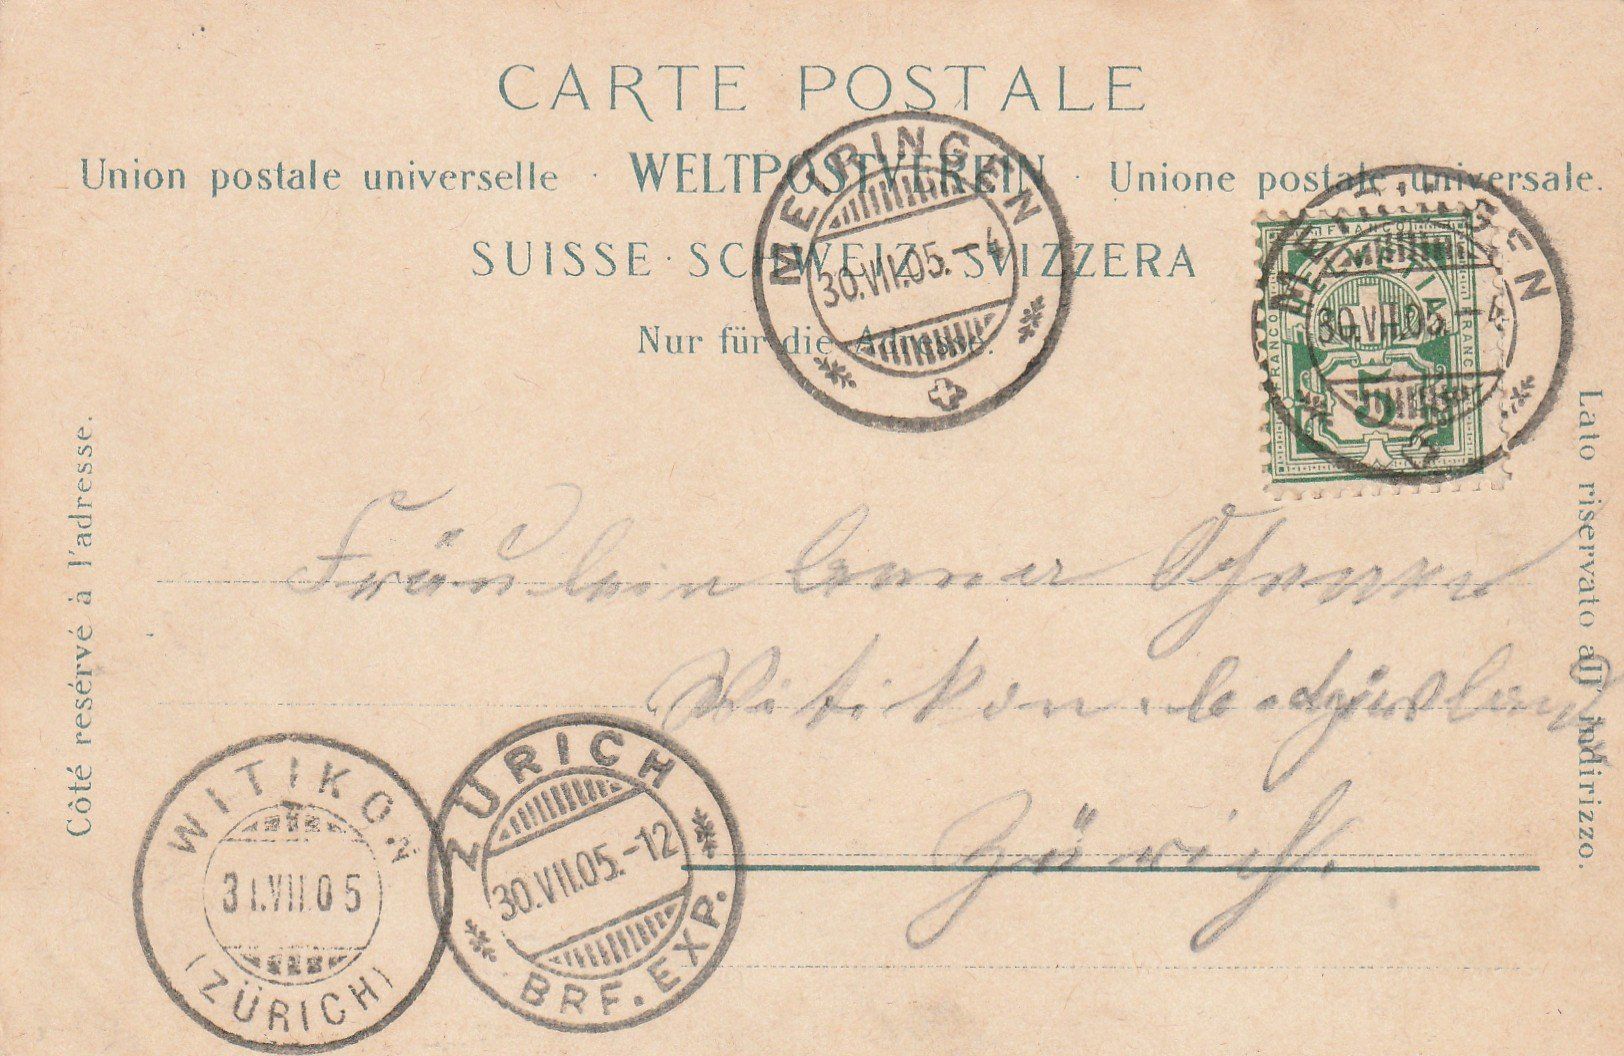 CARTE POSTALE
Union postale universelle · WELTPOSTVEREIN · Unione postale universale.
SUISSE · SCHWEIZ · SVIZZERA
Nur für die Adresse.
Côté resérvé à l'adresse.
Lato riservato all' indirizzo.
MEIRINGEN
30.VII.05.-4
MEIRINGEN
30.VII.05.-4
FRANCO
HELVETIA
FRANCO
FRANCO
5
Fräulein
Witikon
Zürich.
WITIKON
31.VII.05
(ZÜRICH)
ZÜRICH
30.VII.05.-12
BRF. EXP.